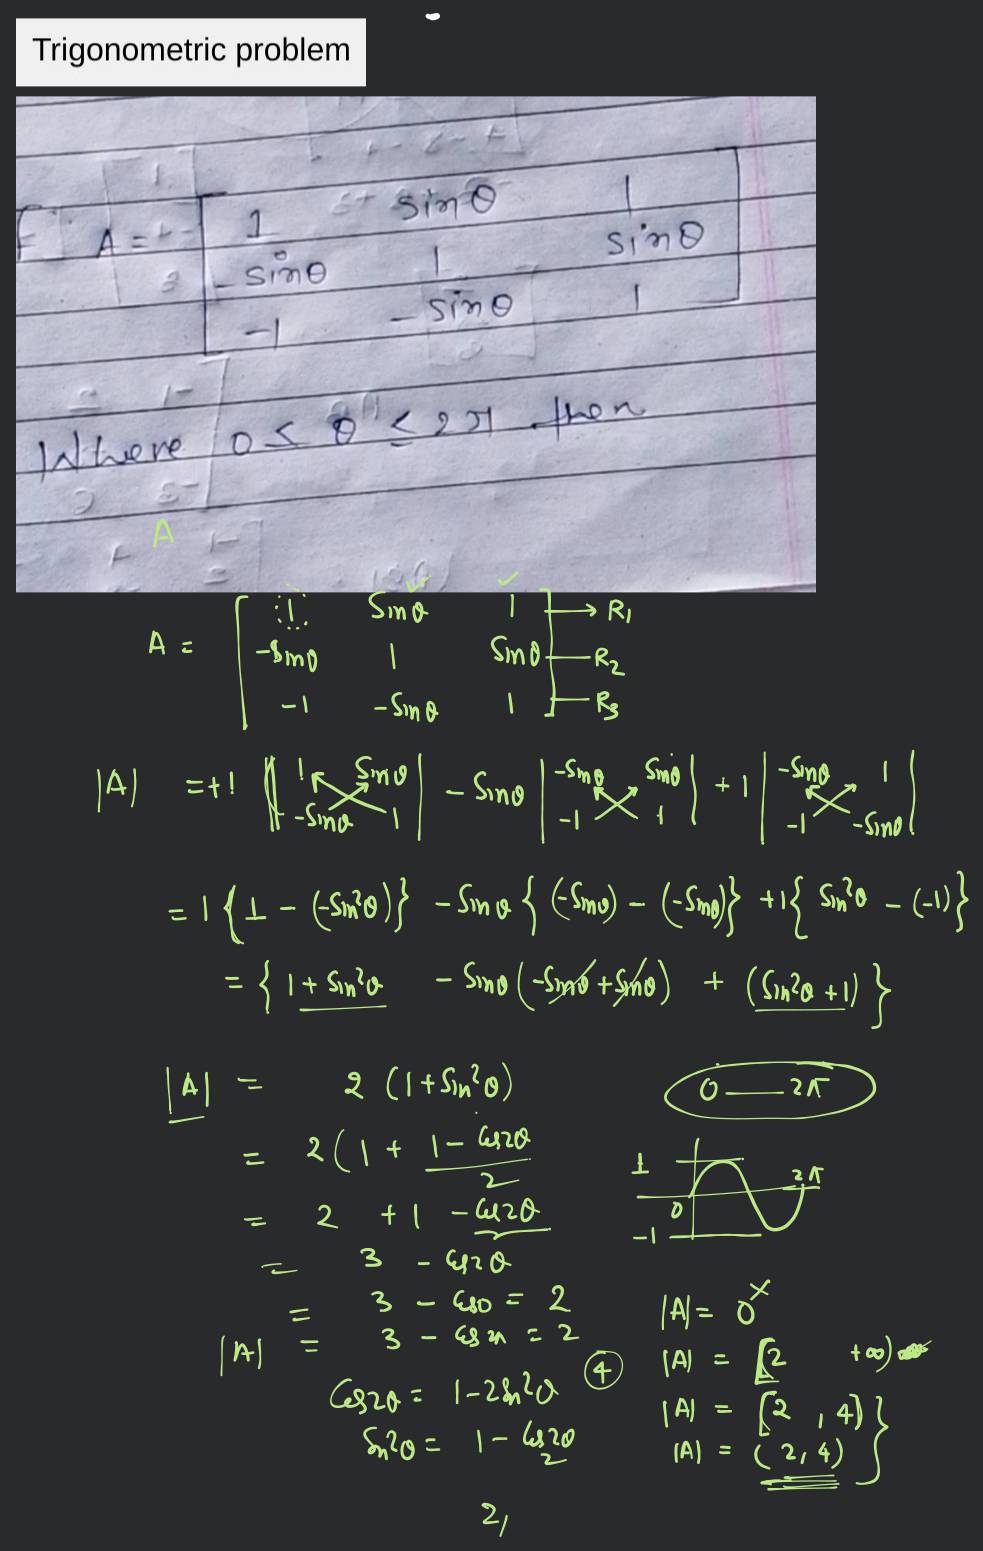 Trigonometric problem
A = 1 sinθ 1
-sinθ 1 sinθ
-1 -sinθ 1
Where 0 ≤ θ ≤ 2π then
A
A = 1 Sinθ 1 → R1
-Sinθ 1 Sinθ — R2
-1 -Sinθ 1 — R3
|A| = +1 | 1 Sinθ -Sinθ 1 | - Sinθ | -Sinθ Sinθ -1 1 | + 1 | -Sinθ 1 -1 -Sinθ |
= 1 {1 - (-Sin²θ)} - Sinθ {(-Sinθ) - (-Sinθ)} +1{ Sin²θ - (-1)}
= { 1 + Sin²θ - Sinθ (-Sinθ + Sinθ) + (Sin²θ +1) }
|A| = 2 (1 + Sin²θ)
0 — 2π
= 2 (1 + 1 - Cos2θ / 2
1 2π
0
-1
= 2 + 1 - Cos2θ
= 3 - Cos2θ
= 3 - Cos0 = 2
|A| = 3 - Cos2π = 2
Cos2θ = 1 - 2Sin²θ
Sin²θ = 1 - Cos2θ / 2
4
|A| = 0 ×
|A| = [2 +∞)
|A| = [2 , 4)
|A| = (2, 4)
2,